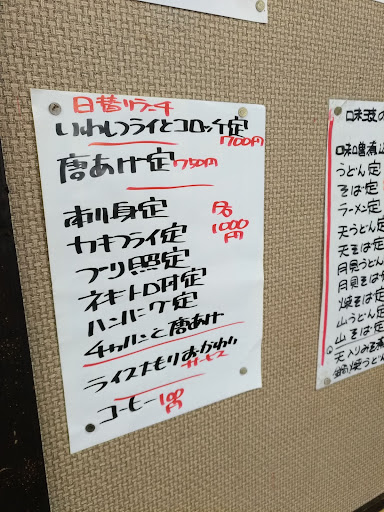 日替りランチ
いわしフライとコロッケ定
700円
唐あげ定 750円
刺身定
カキフライ定
ブリ照定
ネギトロ丼定
ハンバーグ定
各
1000
円
チャハンと唐あげ
ライス大もりおかわり
サービス
コーヒー 100円
うどん定
そば定
ラーメン定
天うどん定
天そば定
月見うどん
月見そば定
焼そば定
山うどん定
山そば定